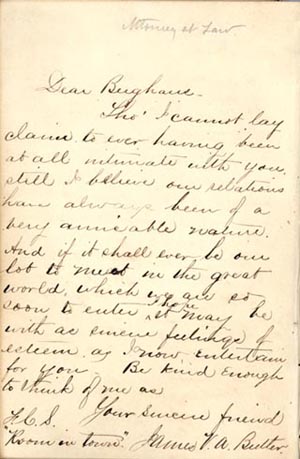 Attorney at Law.
Dear Berghaus -
Tho' I cannot lay
claim to ever having been
at all intimate with you,
still I believe our relations
have always been of a
very amicable nature.
And if it shall ever be our
lot to meet in the great
world, which we are so
soon to enter I hope it may be
with as sincere feelings of
esteem as I now entertain
for you. Be kind enough
to think of me as
Your sincere friend
F.C.S.
"Room in town." James V. A. Butler.